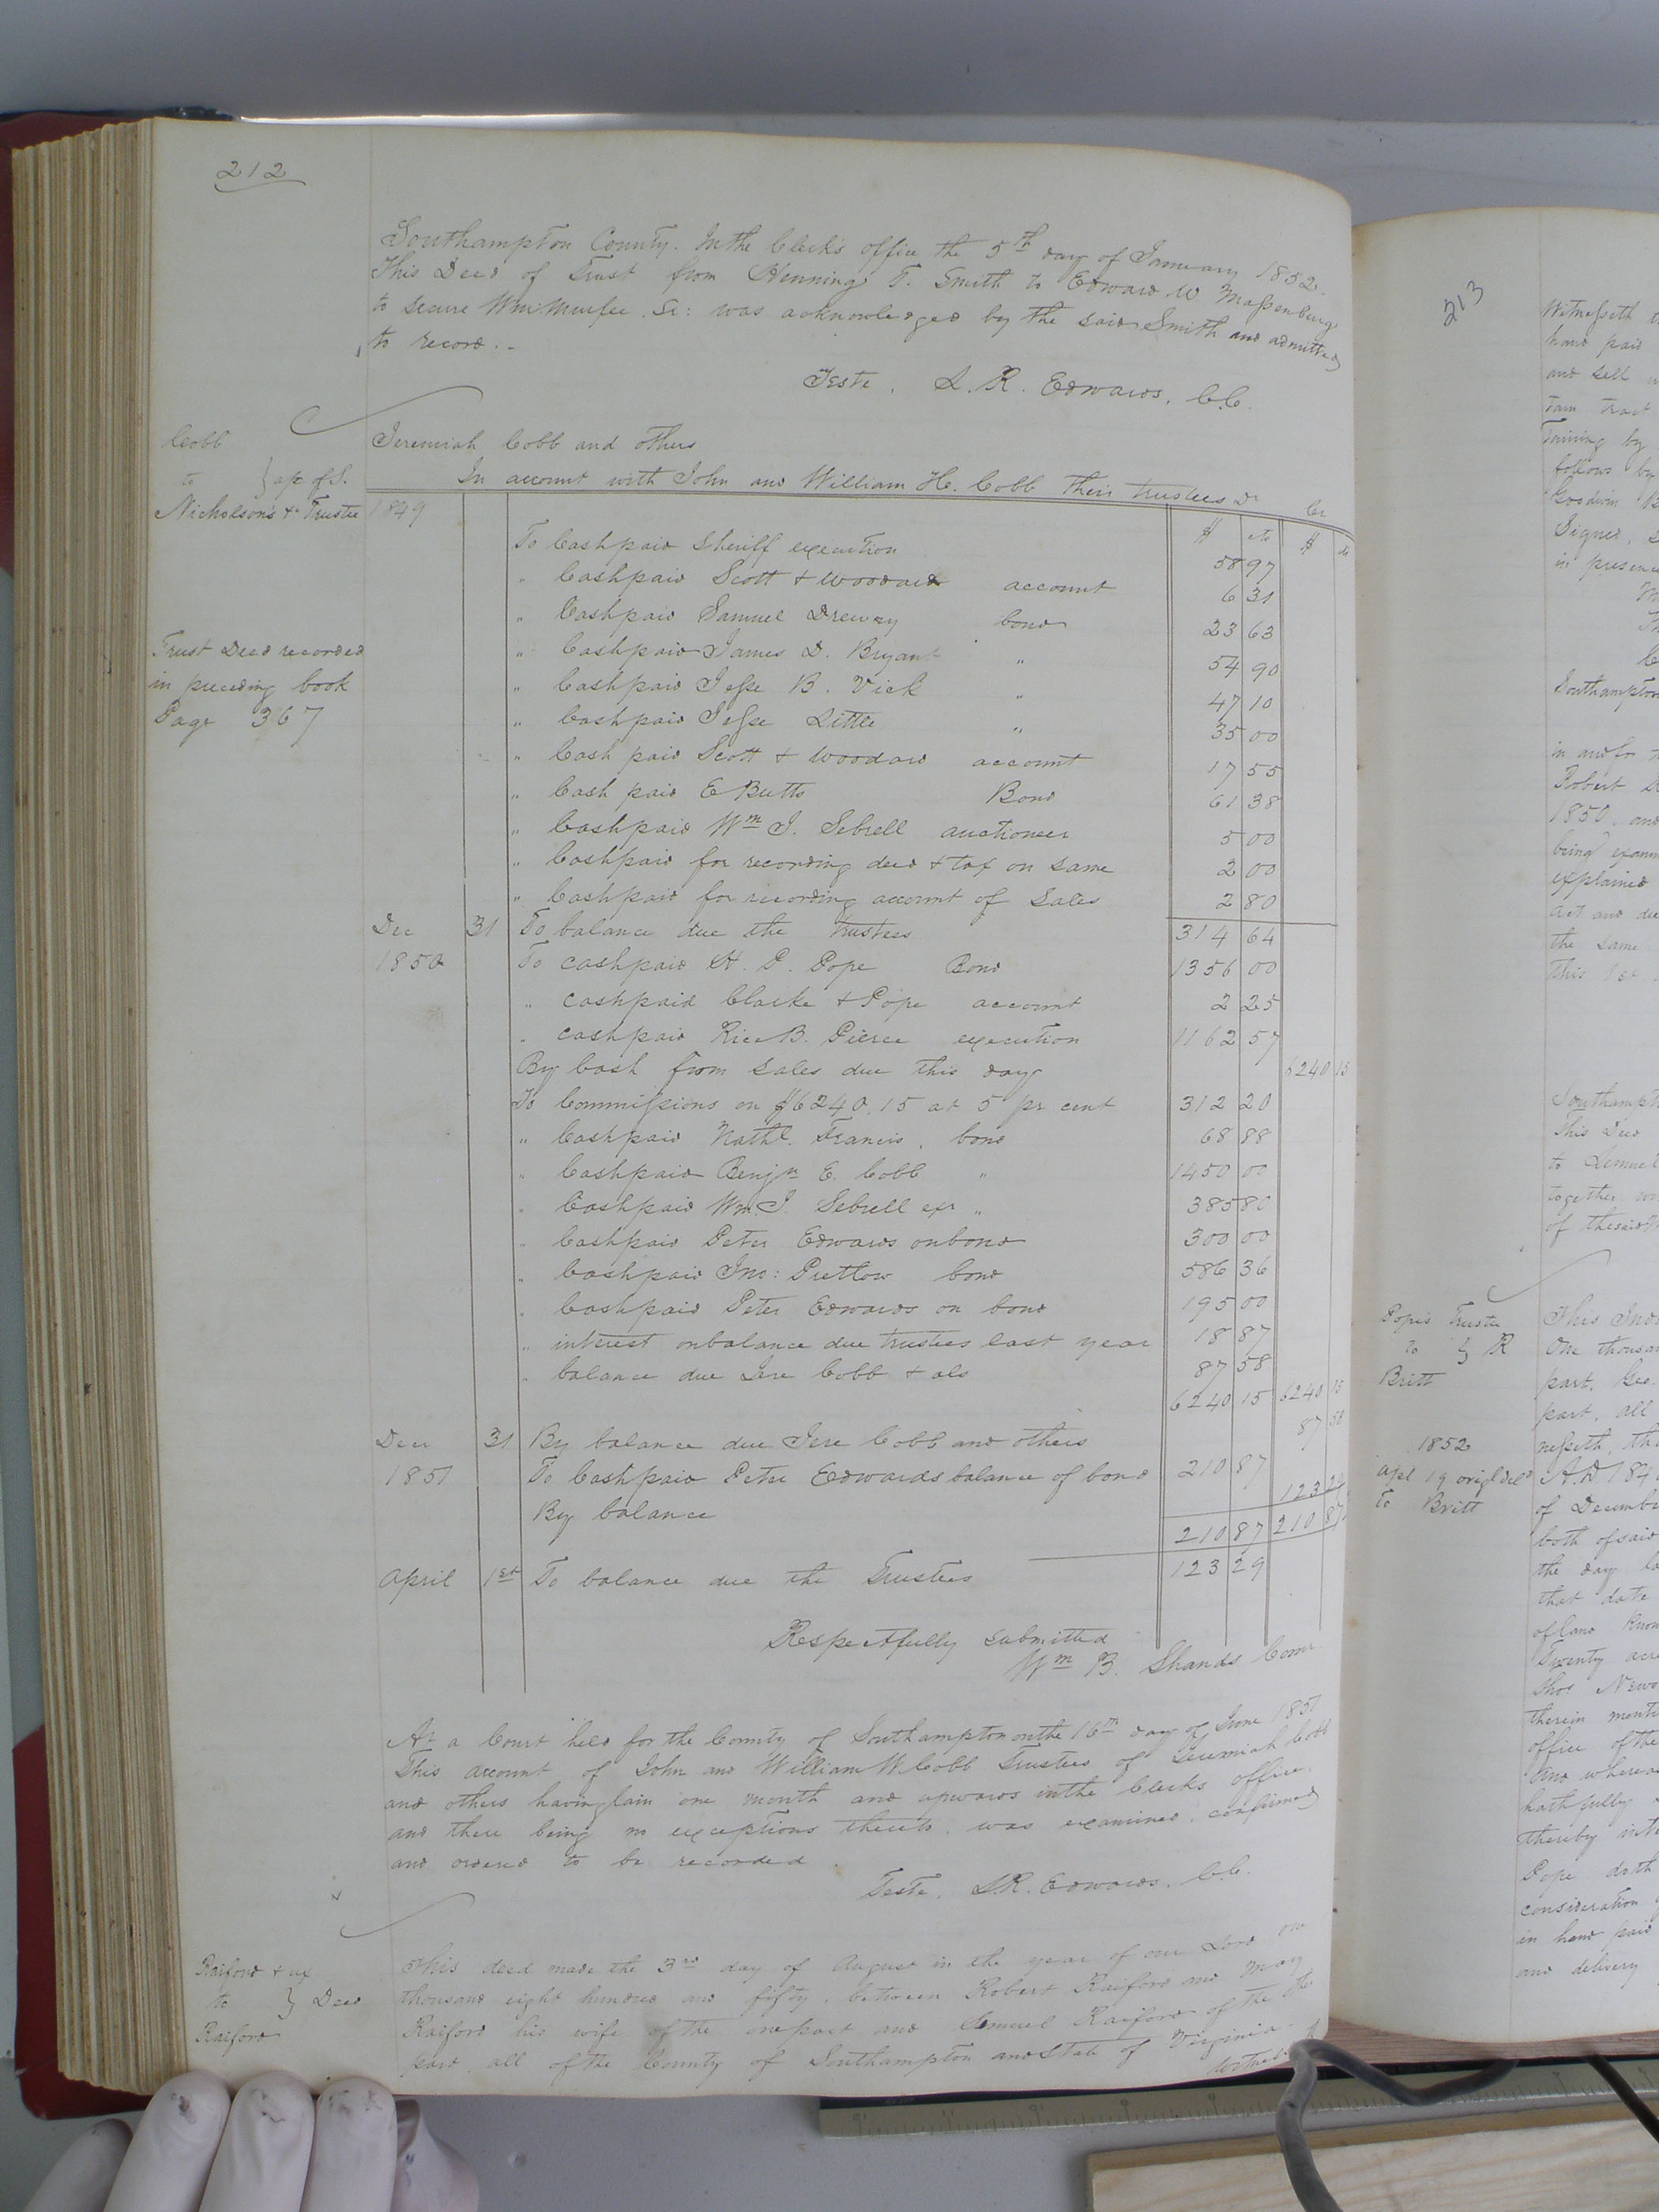 212
Southampton County. In the Clerk's office the 5th day of January 1852.
This Deed of Trust from Henning T. Smith to Edward W Massenburg
to secure Wm: Murfee Sr: was acknowledged by the said Smith and admitted
to record. -
Teste, L. R. Edwards, C.C.
Cobb
to } a/c of S.
Nicholson's &c Trustee
Jeremiah Cobb and others
In account with John and William H. Cobb their trustees Dr Cr
1849 $ cts $ cts
To Cash paid Sheriff execution 58 97
" Cash paid Scott & Woodard account 6 31
" Cash paid Samuel Drewry bond 23 63
" Cash paid James D. Bryant " 54 90
" Cash paid Jesse B. Vick " 47 10
" Cash paid Jesse Little " 35 00
" Cash paid Scott & Woodard account 17 55
" Cash paid E Butts Bond 61 38
" Cash paid Wm J. Sebrell auctioneer 5 00
" Cash paid for recording deed & tax on same 2 00
" Cash paid for recording account of Sales 2 80
Trust Deed recorded
in preceding book
Page 367
Dec 31 To balance due the trustees 314 64
1850 To cash paid H. P. Pope Bond 1356 00
" cash paid Clarke & Pope account 2 25
" cash paid Rice B. Pierce execution 1162 57
By Cash from sales due this day 6240 15
To Commissions on $6240.15 at 5 pr cent 312 20
" Cash paid Nathl. Francis, bond 68 88
" Cash paid Benjn E. Cobb " 1450 00
" Cash paid Wm. J. Sebrell exr " 385 80
" Cash paid Peter Edwards on bond 300 00
" Cash paid Jno: Pretlow bond 586 36
" Cash paid Peter Edwards on bond 195 00
" interest on balance due trustees last year 18 87
" balance due Jere Cobb & als 87 58
6240 15 6240 15
Decr 31 By balance due Jere Cobb and others 87 58
1851 To Cash paid Peter Edwards balance of bond 210 87
By balance 123 29
210 87 210 87
April 1st To balance due the Trustees 123 29
Respectfully submitted
Wm B. Shands Comr.
At a Court held for the County of Southampton on the 16th day of June 1851
This account of John and William W Cobb Trustees of Jeremiah Cobb
and others having lain one month and upwards in the Clerks office
and there being no exceptions thereto, was examined, confirmed
and ordered to be recorded.
Teste, L.R. Edwards, C.C.
Raiford & ux
to } Deed
Raiford
This deed made the 3rd day of August in the year of our Lord one
thousand eight hundred and fifty, between Robert Raiford and Mary
Raiford his wife of the one part and Lemuel Raiford of the other
part, all of the County of Southampton and State of Virginia.
213
Witnesseth
hand paid
and sell
tain tract
taining by
follows by
Goodwin
Signed,
in presence
Southampton
in and for
Robert
1850, and
being
explained
act and
the same
this
Southampton
This Deed
to Lemuel
together
of the said
Popes Trustee
to } R
Britt
1852
Apl 19 origl deld
to Britt
This
One thousand
part, Geo.
part, all
nesseth, that
A.D 184
of December
both of said
the day
that date
of land
Twenty acres
Thos. 
therein
office of the
and whereas
hath fully
thereby
Pope doth
consideration
in hand paid
and delivery